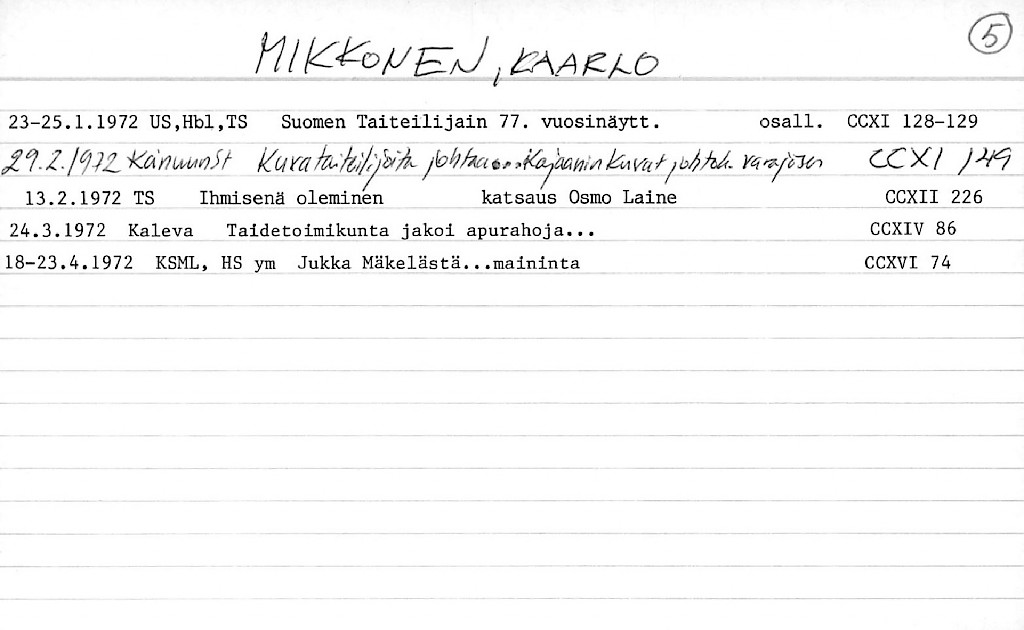 MIKKONEN, KAARLO
5
23-25.1.1972 US,Hbl,TS Suomen Taiteilijain 77. vuosinäytt. osall. CCXI 128-129
29.2.1972 KainuunSt Kuvataiteilijoita johtaa... Kajaanin kuvat johtok. varajäsen CCXI 149
13.2.1972 TS Ihmisenä oleminen katsaus Osmo Laine CCXII 226
24.3.1972 Kaleva Taidetoimikunta jakoi apurahoja... CCXIV 86
18-23.4.1972 KSML, HS ym Jukka Mäkelästä...maininta CCXVI 74